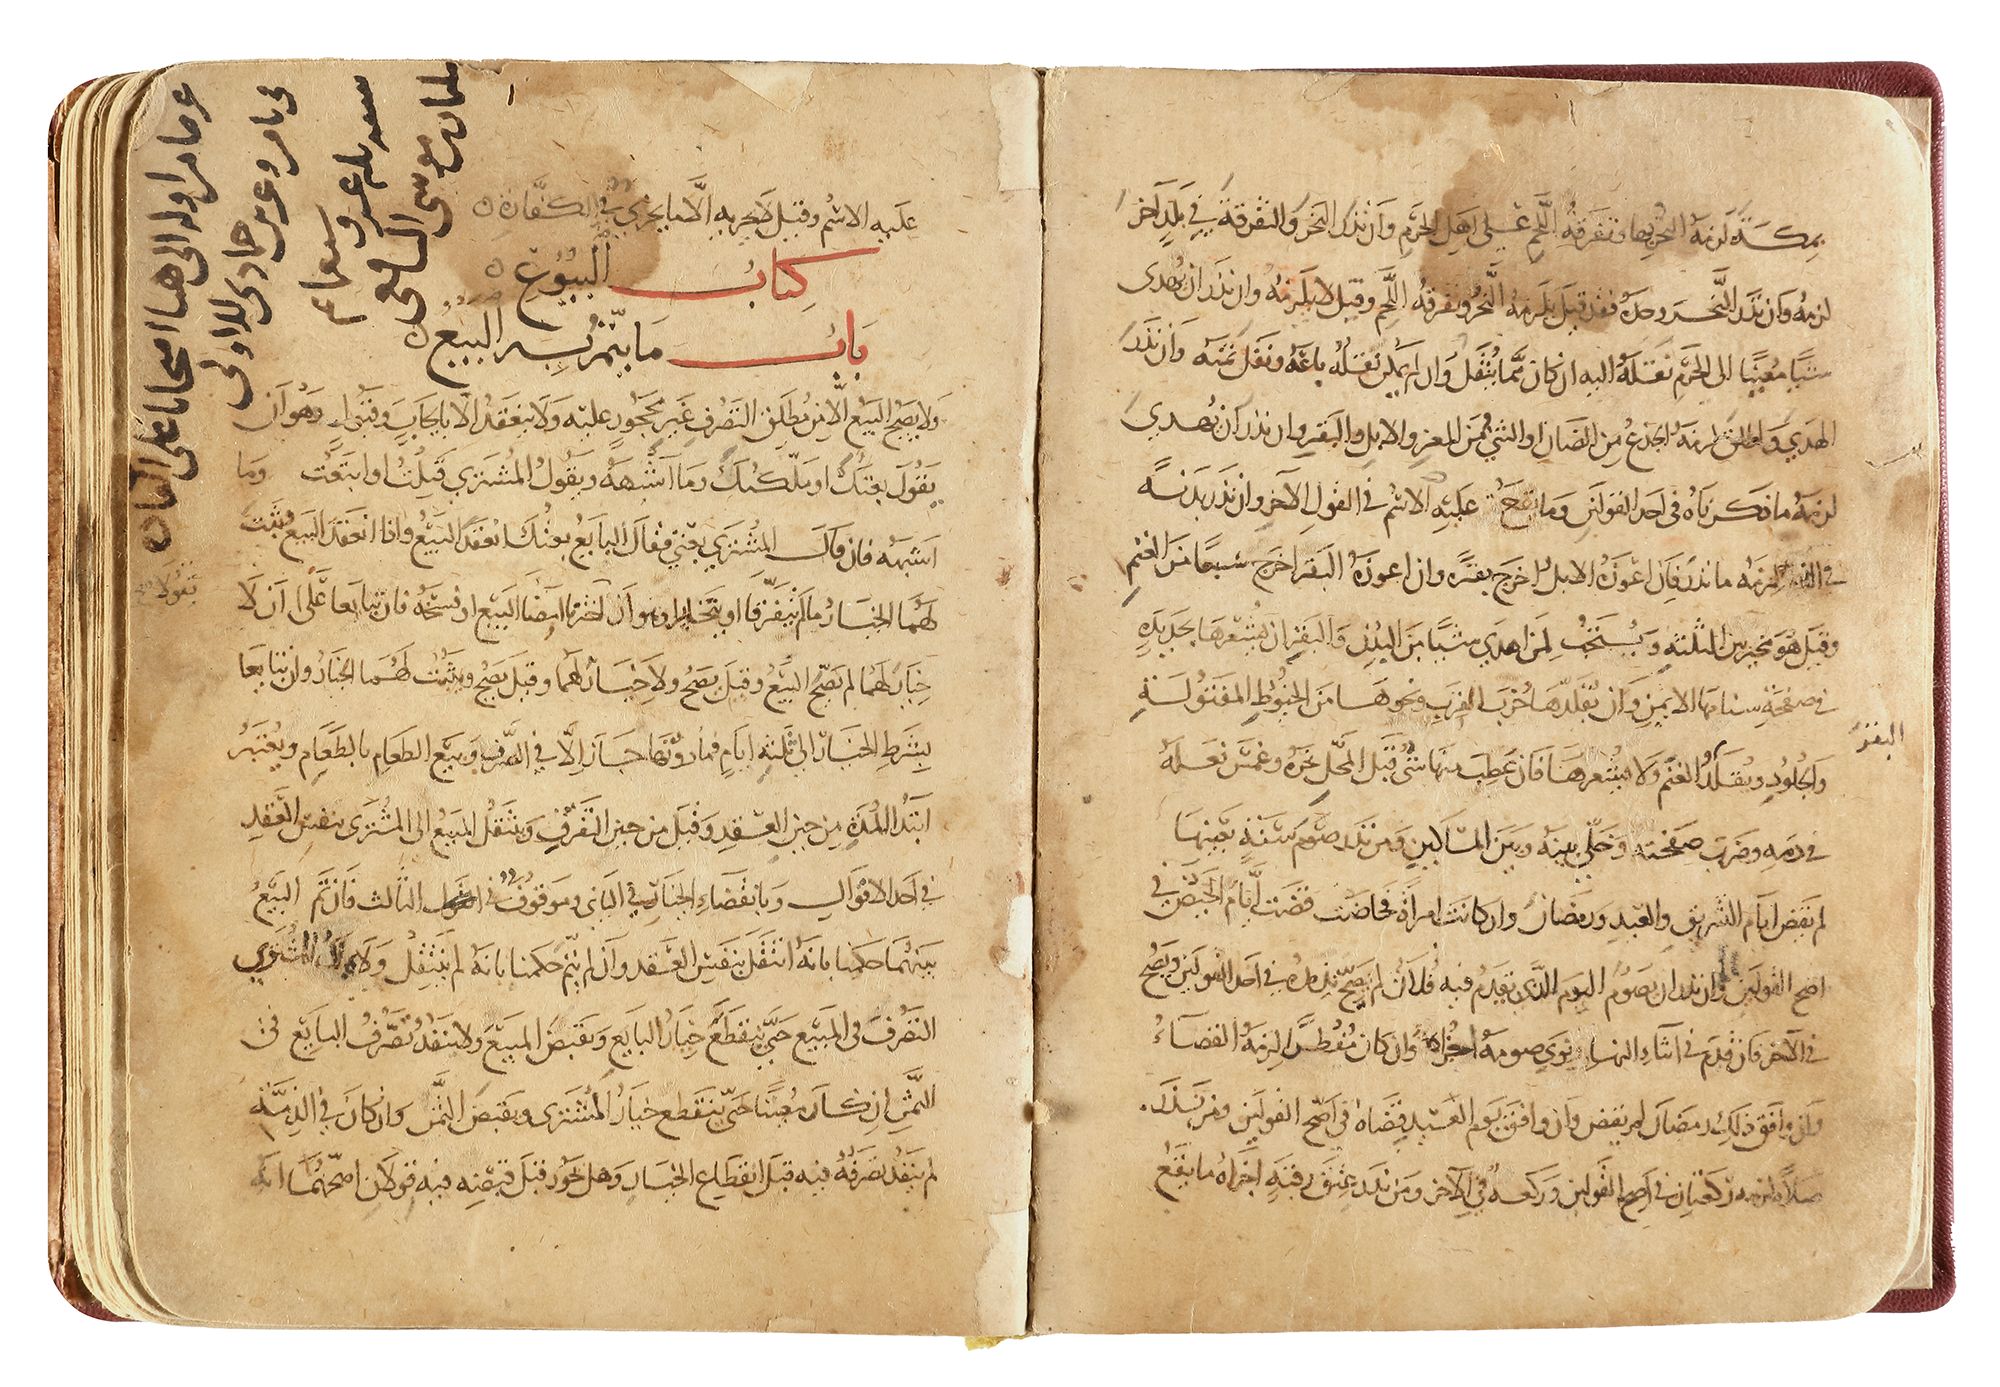 بمكة لزمه النحر بها وتفرقة اللحم على اهل الحرم وان نذر النحر والتفرقة في بلد اخر
لزمه وان نذر النحر وحده فقد قيل يلزمه النحر وتفرقه اللحم وقيل لا يلزمه وان نذر ان يهدى
شيا معينا الى الحرم نقله اليه ان كان مما ينقل وان لم يمكن نقله باعه ونقل ثمنه وان نذر
الهدي واطلق لزمه الجذع من الضان او الثني من المعز والابل والبقر وان نذر ان يهدي
لزمه ما ذكرناه في احد القولين وما يقع عليه الاسم في القول الاخر وان نذر بدنة
في الذمة لزمه ما نذر فان اعوزه الابل اخرج بقرة وان اعوزه البقر اخرج سبعا من الغنم
وقيل هو مخير بين الثلثه ويستحب لمن اهدى شيا من البدن والبقر ان يشعرها بحديده
في صفحة سنامها الايمن وان يقلدها خرب القرب ونحوها من الخيوط المفتولة
والجلود ويقلد الغنم ولا يشعرها فان عطب منها شى قبل المحل نحره وغمس نعله
في دمه وضرب صفحته وخلى بينه وبين المساكين ومن نذر صوم سنة بعينها
لم يقض ايام التشريق والعيد ورمضان وان كانت امراة فحاضت قضت ايام الحيض في
اصح القولين وان نذر ان يصوم اليوم الذي يقدم فيه فلان لم يصح نذره في احد القولين ويصح
في الاخر فان قدم في اثناء النهار ينوي صومه اجزاه وان كان مفطرا لزمه القضاء
وان وافق ذلك رمضان لم يقض وان وافق يوم العيد قضاه في اصح القولين ومن نذر
صلاة لزمه ركعتان في اصح القولين وركعه في الاخر ومن نذر عتق رقبة اجزاه ما يقع
عليه الاسم وقيل لا يجزيه الا ما يجزي في الكفارة
كتاب البيوع
باب ما يتم به البيع
ولا يصح البيع الا من مطلق التصرف غير محجور عليه ولا ينعقد الا بايجاب وقبول وهو ان
يقول بعتك او ملكتك وما اشبهه ويقول المشتري قبلت او ابتعت وما
اشبهه فان قال المشتري بعني فقال البايع بعتك انعقد البيع واذا انعقد البيع ثبت
لهما الخيار ما لم يتفرقا او يتخايرا وهو ان يقولا اخترنا امضا البيع او فسخه فان تبايعا على ان لا
خيار لهما لم يصح البيع وقيل يصح ولا خيار لهما وقيل يصح ويثبت لهما الخيار وان تبايعا
بشرط الخيار الى ثلثه ايام فما دونها جاز الا في الصرف وبيع الطعام بالطعام ويعتبر
ابتدا المدة من حين العقد وقيل من حين التفرق وينتقل المبيع الى المشترى بنفس العقد
في احد الاقوال وبانقضاء الخيار في الثاني وموقوف في القول الثالث فان تم البيع
بينهما حكمنا بانه انتقل بنفس العقد وان لم يتم حكمنا بانه لم ينتقل ولا يملك المشتري
التصرف في المبيع حتى ينقطع خيار البايع ويقبض المبيع ولا ينفذ تصرف البايع في
الثمن ان كان معينا حتى ينقطع خيار المشترى ويقبض الثمن وان كان في الذمة
لم ينفذ تصرفه فيه قبل انقطاع الخيار وهل يجوز قبل قبضه فيه قولان اصحهما انه